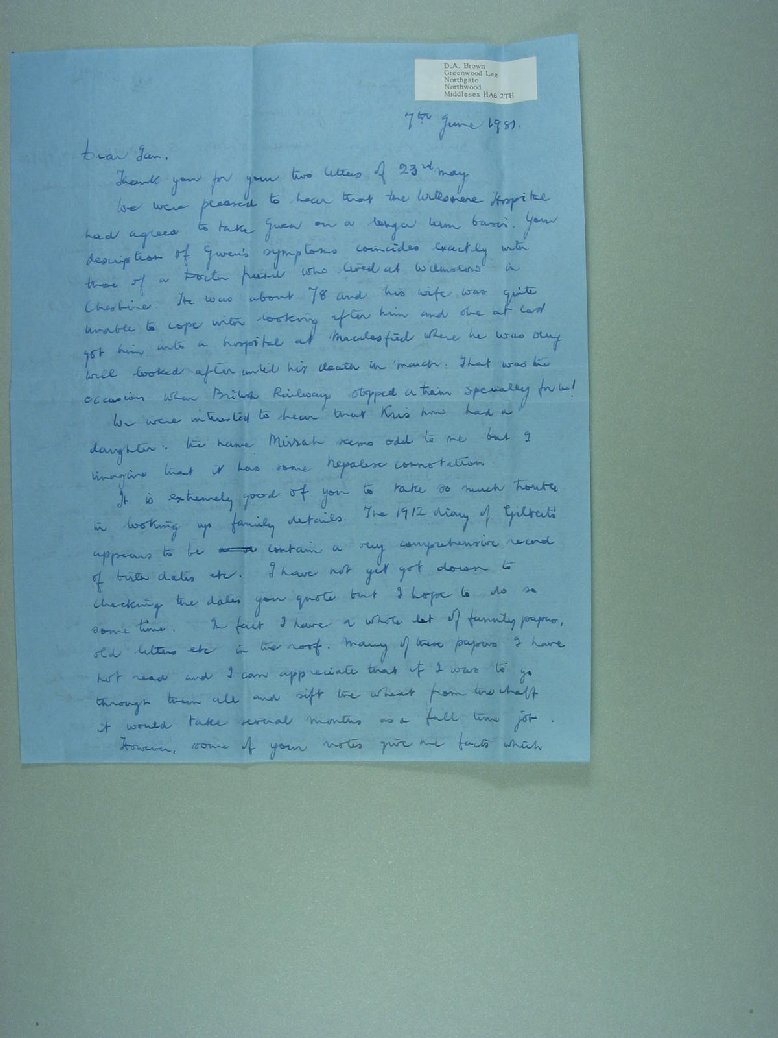 D.A. Brown
Greenwood Lee
Northgate
Northwood
Middlesex HA6 2TH
7th June 1981.
Dear Ian.
Thank you for your two letters of 23rd May
We were pleased to hear that the Hospital
had agreed to take Gwen on a longer term basis. Your
description of Gwen's symptoms coincides exactly with
those of a Doctor friend who lived at Wilmslow in
Cheshire He was about 78 and his wife was quite
unable to cope with looking after him and she at last
got him into a hospital at Macclesfield where he was very
well looked after until his death in March. That was the
occasion when British Railways stopped a train specially for us!
We were interested to hear that Kris now had a
daughter. The name Mirrah seems odd to me but I
imagine that it has some Nepalese connotation
It is extremely good of you to take so much trouble
in looking up family details. The 1912 diary of Gilbert's
appears to be contain a very comprehensive record
of birth dates etc. I have not yet got down to
checking the dates you quote but I hope to do so
some time. In fact I have a whole lot of family papers,
old letters etc in the roof. Many of these papers I have
not read and I can appreciate that if I was to go
through them all and sift the wheat from the chaff
it would take several months as a full time job.
However, some of your notes give me facts which